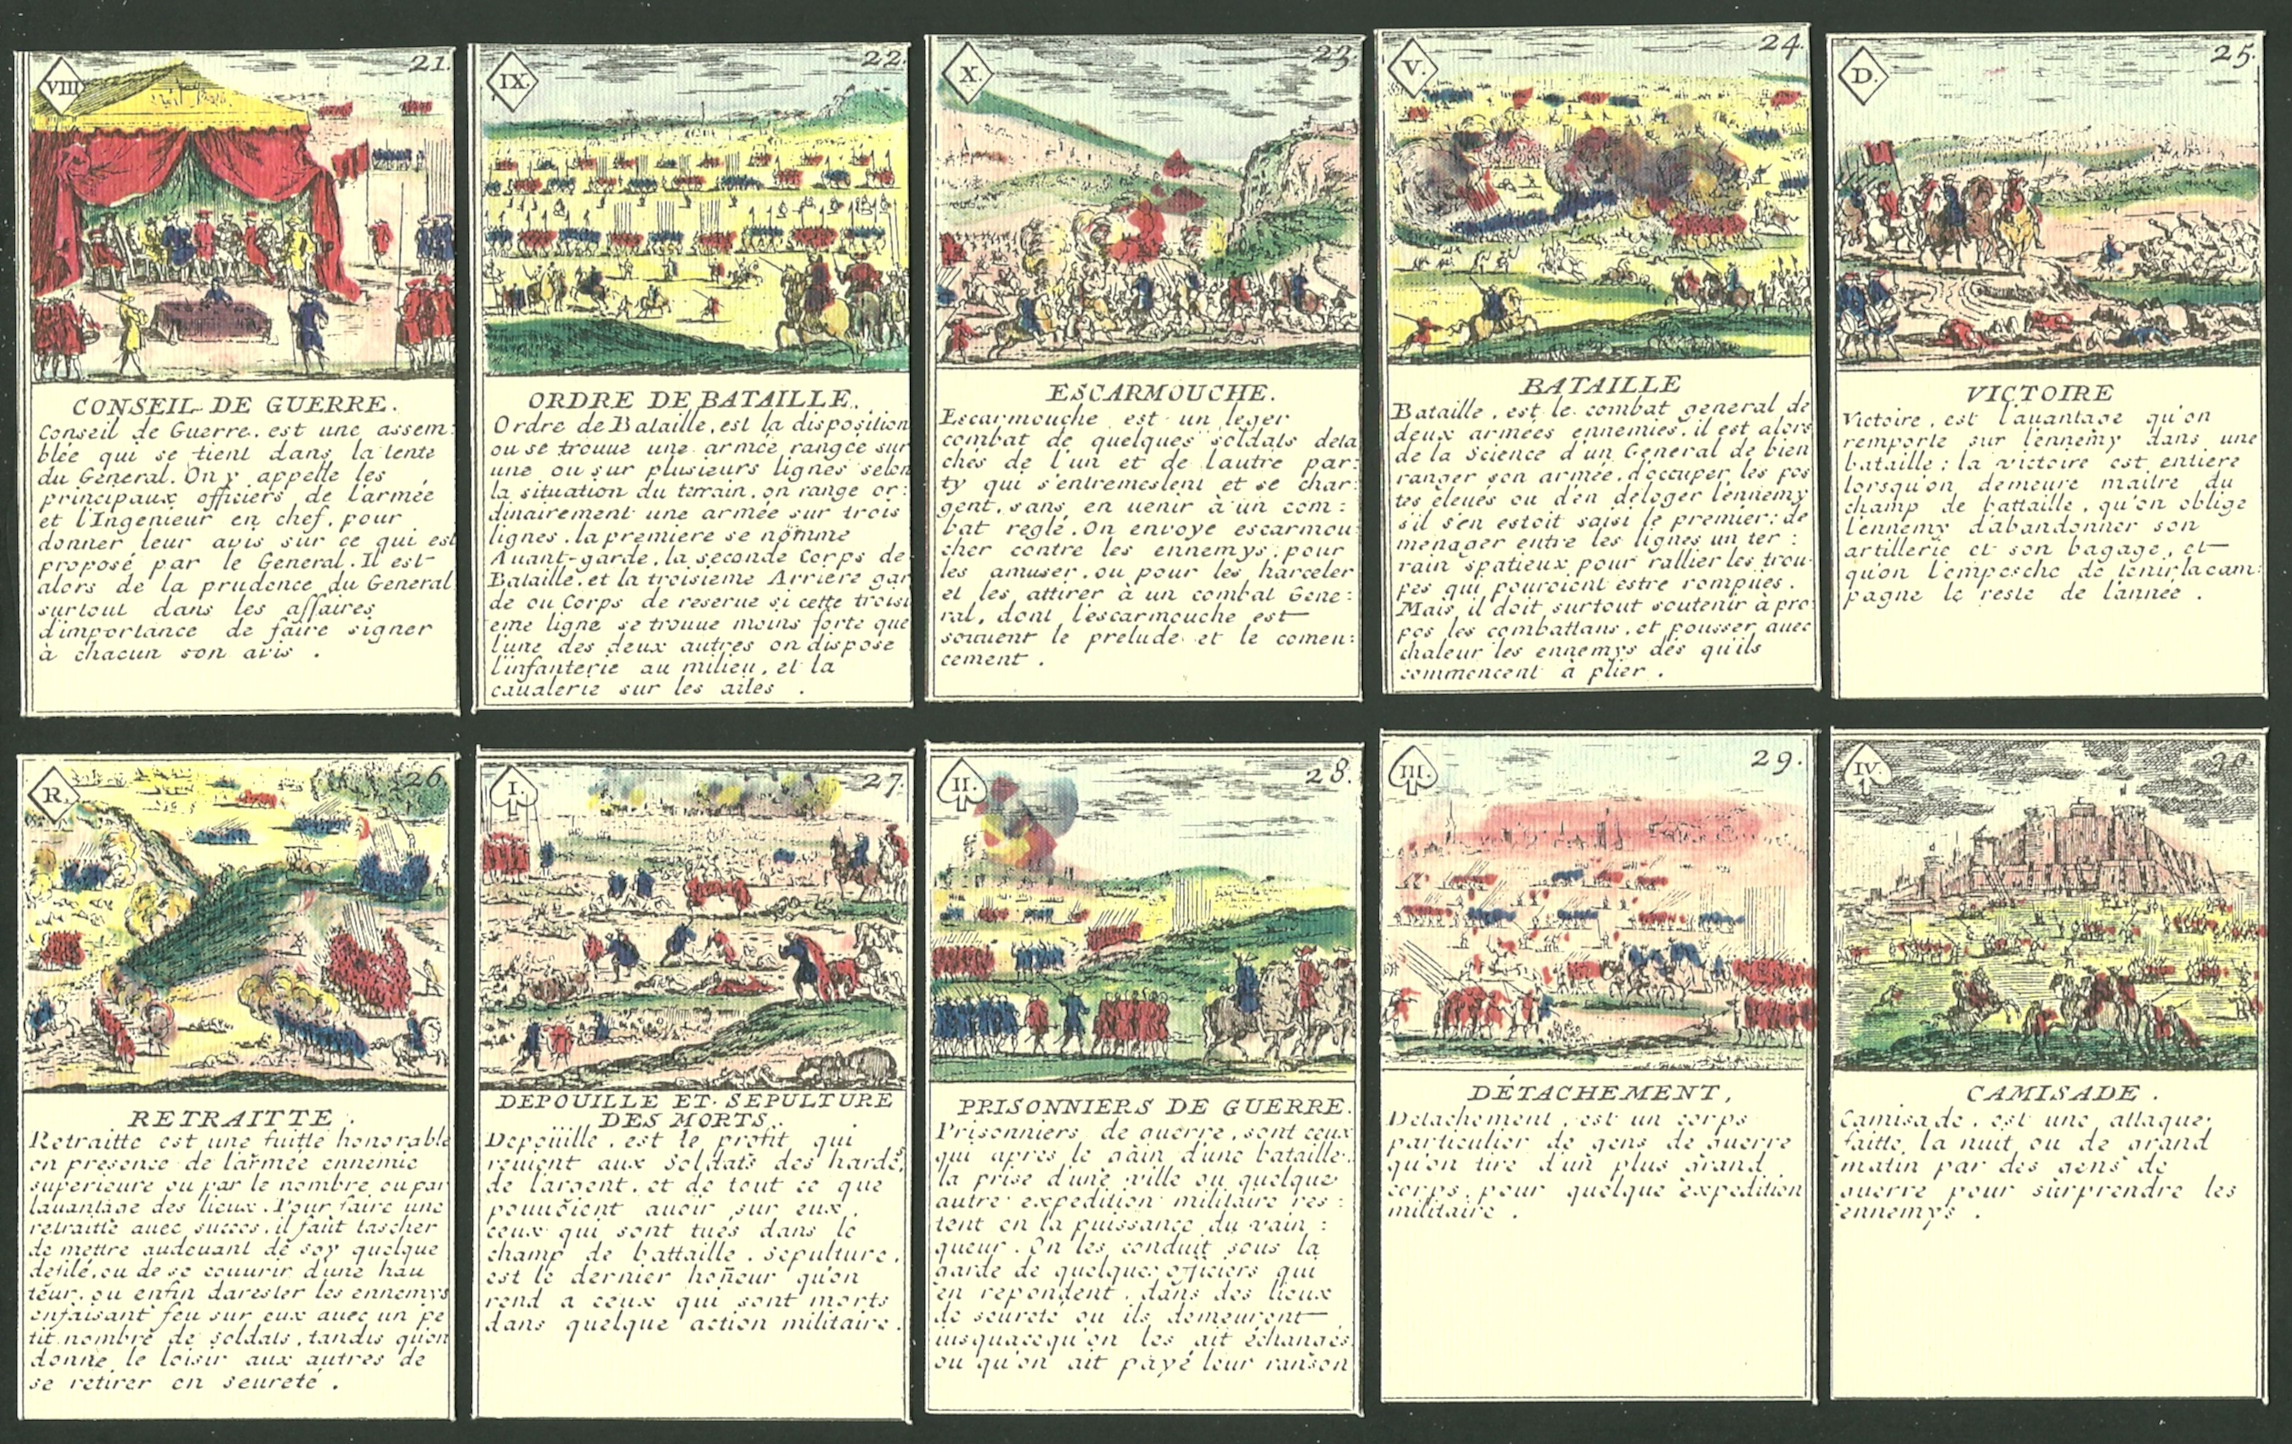 VIII
21.
CONSEIL DE GUERRE.
Conseil de Guerre. est une assem:
blée qui se tient dans la tente
du General. On y appelle les
principaux officiers de l'armée
et l'Ingenieur en chef, pour
donner leur avis sur ce qui est
proposé par le General. Il est
alors de la prudence du General
surtout dans les affaires
d'importance de faire signer
à chacun son avis .
IX.
22.
ORDRE DE BATAILLE.
Ordre de Bataille, est la disposition
ou se trouue une armée rangée sur
une ou sur plusieurs lignes selon
la situation du terrain. on range or:
dinairement une armée sur trois
lignes. la premiere se nõmme
Auant-garde, la seconde Corps de
Bataille, et la troisieme Arriere gar
de ou Corps de reserue si cette troisi
eme ligne se trouue moins forte que
l'une des deux autres on dispose
l'infanterie au milieu, et la
caualerie sur les ailes .
X.
23.
ESCARMOUCHE.
Escarmouche est un leger
combat de quelques soldats deta
chés de l'un et de l'autre par:
ty qui s'entremeslent et se char:
gent, sans en uenir à un com:
bat reglé. On enuoye escarmou:
cher contre les ennemys, pour
les amuser, ou pour les harceler
et les attirer à un combat Gene:
ral, dont l'escarmouche est
souuent le prelude et le comen:
cement .
V.
24.
BATAILLE
Bataille, est le combat general de
deux armées ennemies. il est alors
de la Science d'un General de bien
ranger son armée, d'occuper les pos
tes éleués ou d'en déloger l'ennemy
s'il s'en estoit saisi le premier: de
menager entre les lignes un ter:
rain spatieux pour rallier les trou:
pes qui pouroient estre rompües.
Mais il doit surtout soutenir à pro
pos les combattans, et pousser auec
chaleur les ennemys dés qu'ils
commencent à plier .
D.
25.
VICTOIRE
Victoire, est l'auantage qu'on
remporte sur l'ennemy dans une
bataille; la victoire est entiere
lorsqu'on demeure maitre du
champ de battaille, qu'on oblige
l'ennemy d'abandonner son
artillerie et son bagage, et
qu'on l'empesche de tenir la cam:
pagne le reste de l'année .
R.
26
RETRAITTE .
Retraitte est une fuitte honorable
en presence de l'armée ennemie
superieure ou par le nombre ou par
l'auantage des lieux. Pour faire une
retraitte auec succes, il faut tascher
de mettre audeuant de soy quelque
defilé, ou de se couurir d'une hau
teur, ou enfin d'arester les ennemys
en faisant feu sur eux auec un pe
tit nombre de soldats, tandis qu'on
donne le loisir aux autres de
se retirer en seureté .
I.
27.
DEPOUILLE ET SEPULTURE
DES MORTS.
Depoüille, est le profit qui
reuient aux soldats des hardes,
de l'argent, et de tout ce que
pouuoient auoir sur eux,
ceux qui sont tués dans le
champ de battaille. Sepulture,
est le dernier hoñeur qu'on
rend a ceux qui sont morts
dans quelque action militaire.
II.
28.
PRISONNIERS DE GUERRE.
Prisonniers de guerre, sont ceux
qui apres le gain d'une bataille
la prise d'une ville ou quelque
autre expedition militaire res:
tent en la puissance du vain:
queur. On les conduit sous la
garde de quelques officiers qui
en repondent, dans des lieux
de seureté ou ils demeurent
iusquacequ'on les ait échangés
ou qu'on ait payé leur ranson
III.
29.
DÉTACHEMENT,
Detachement, est un corps
particulier de gens de guerre
qu'on tire d'un plus grand
corps, pour quelque expedition
militaire .
IV.
30
CAMISADE .
Camisade, est une attaque,
faitte la nuit ou de grand
matin par des gens de
guerre pour surprendre les
ennemys .